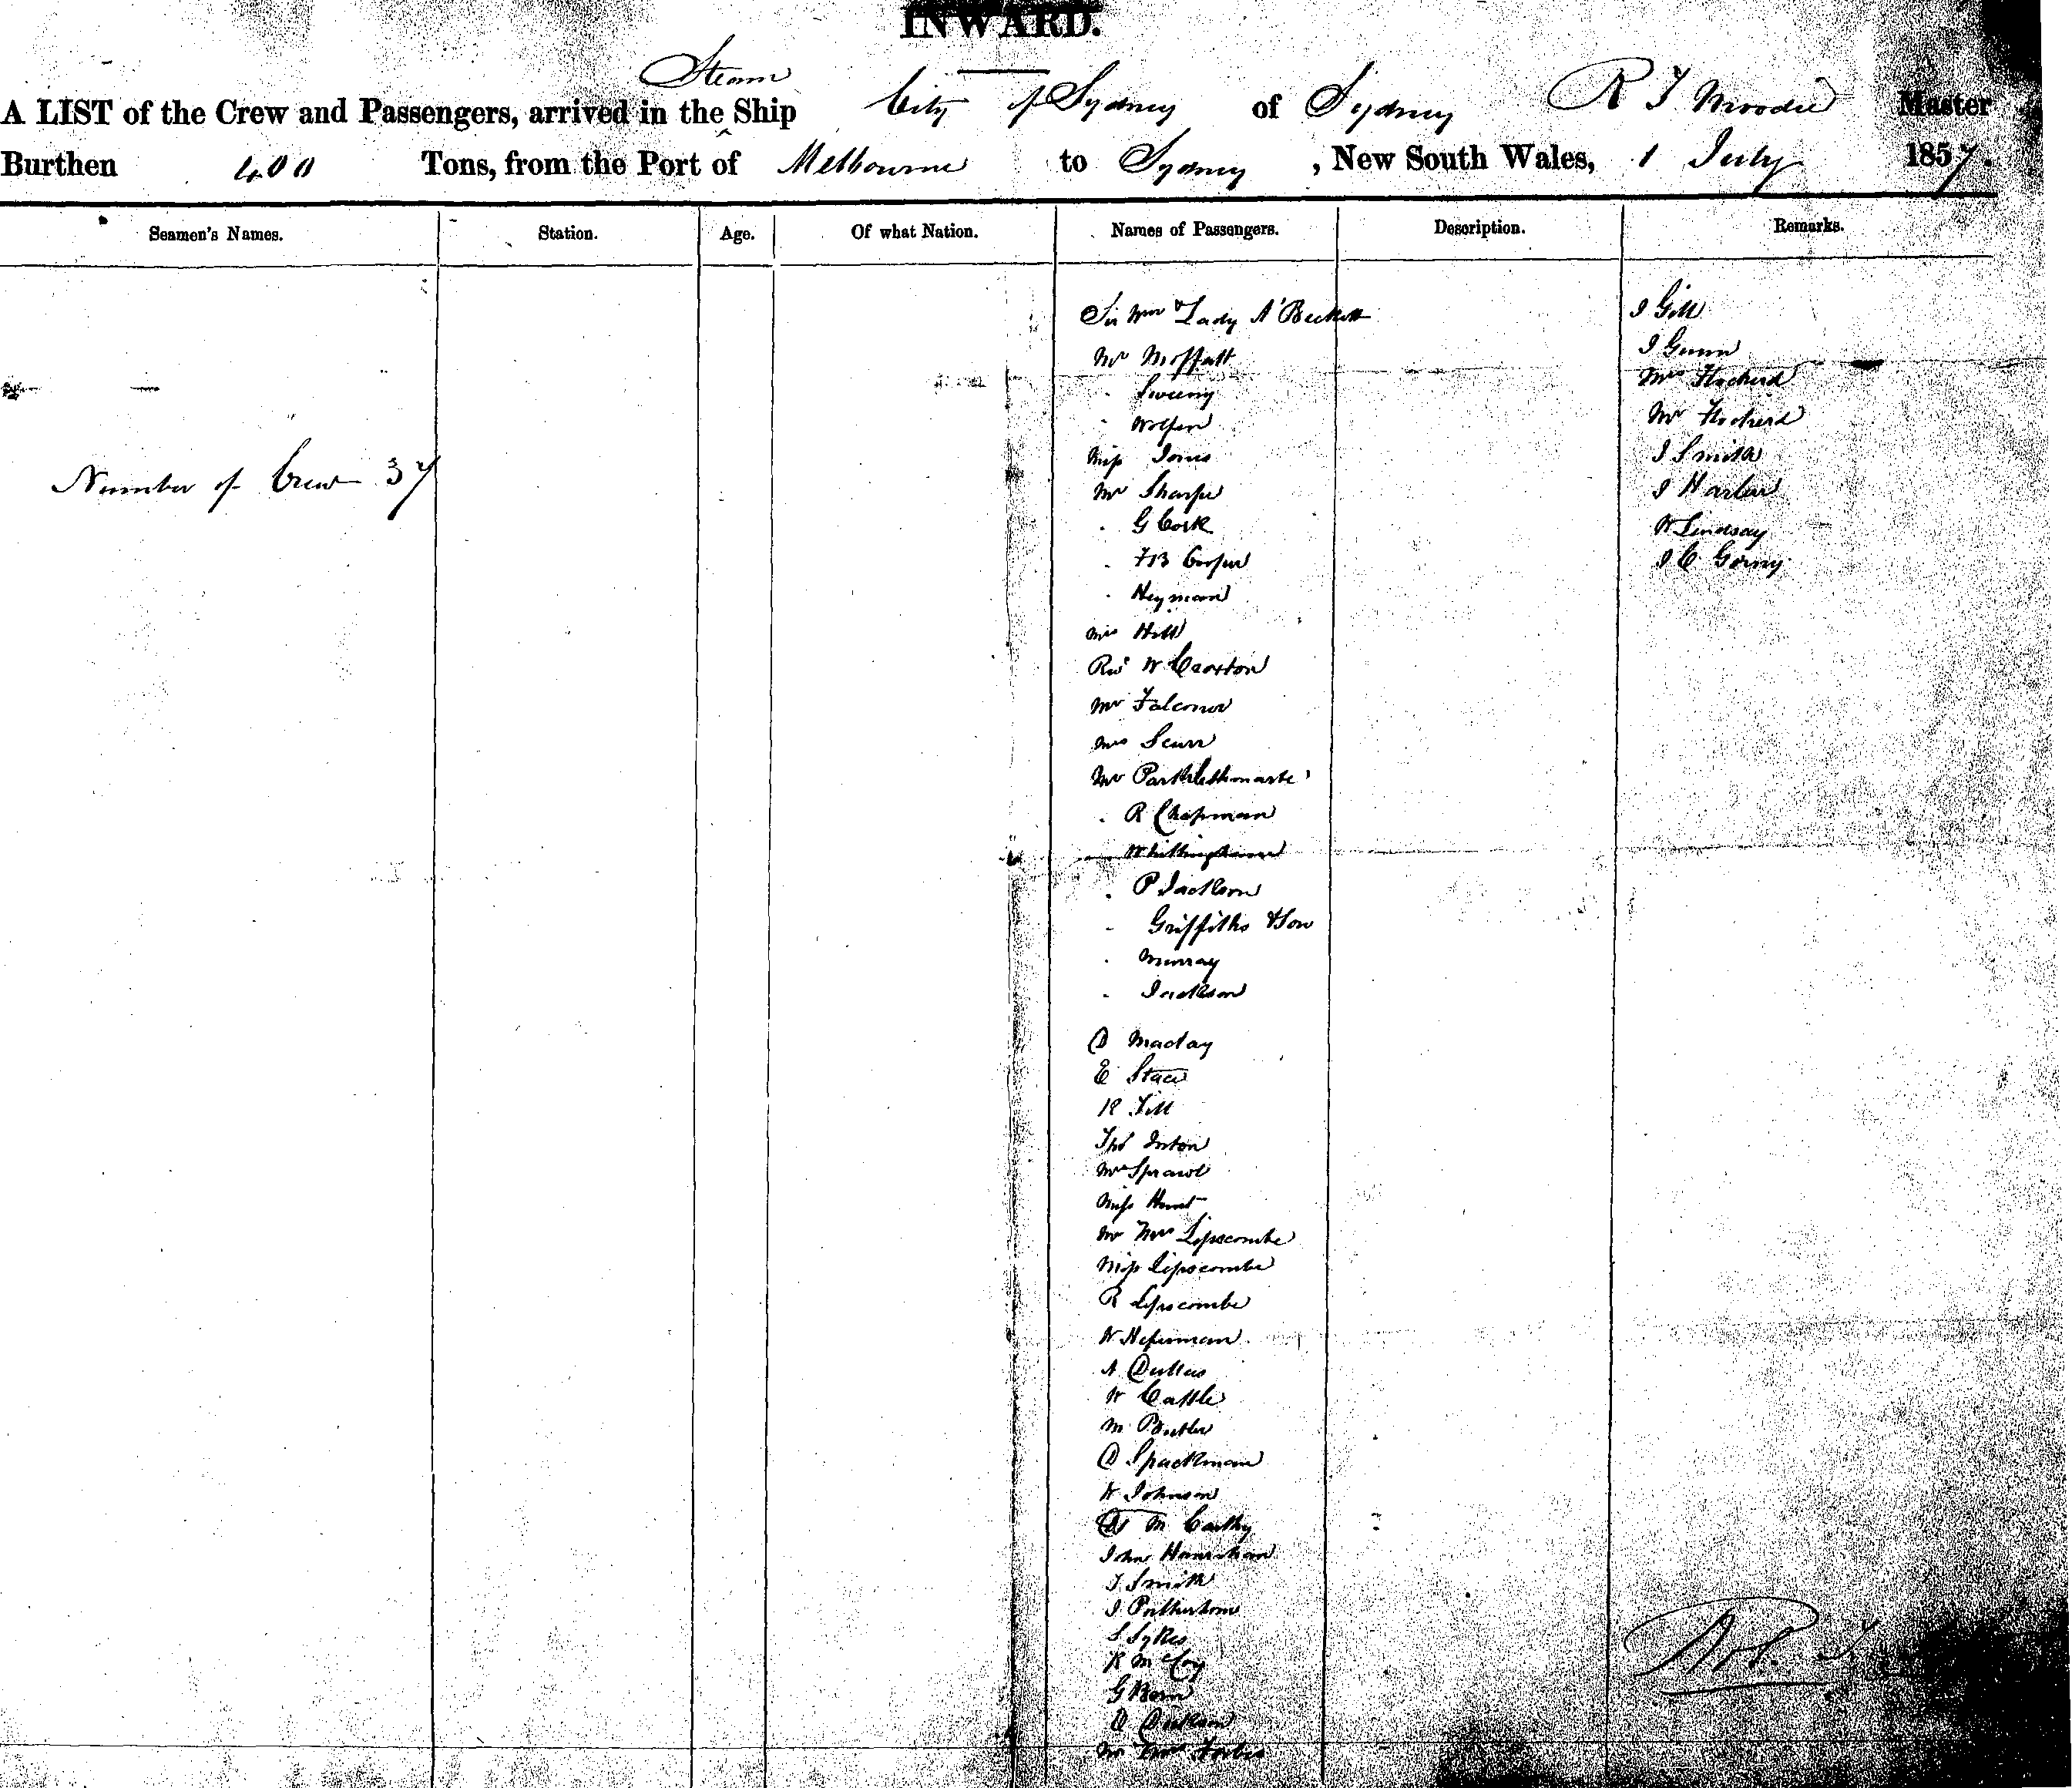 INWARD.
Steam
A LIST of the Crew and Passengers, arrived in the Ship City of Sydney of Sydney R T Moodie Master
Burthen 400 Tons, from the Port of Melbourne to Sydney, New South Wales, 1 July 1857.
Seamen's Names. Station. Age. Of what Nation. Names of Passengers. Description. Remarks.
Number of Crew 37
Sir Wm & Lady A'Beckett
Mr Moffatt
Sweeny
Miss Jones
Mr Sharpe
G Cork
F B Cooper
Heyman
Mrs Hill
Revd W Claxton
Mr Falconer
Mrs Scurr
Mr
R Chapman
Whittingham
P Jackson
Griffiths & Son
Murray
Jackson
D Maclay
E Stace
R Till
Thos Inton
Mr Sprawl
Miss Hunt
Mr Mrs Lipscombe
Miss Lipscombe
R Lipscombe
W
A
W Cattle
M Butler
D Spackman
W Johnson
M Carthy
John Hanrahan
T Smith
J
S Sykes
R McCoy
G
D
Mr Mrs Forbes
J Gill
J Gunn
Mrs
Mr
J Smith
J
W Lindsay
J C